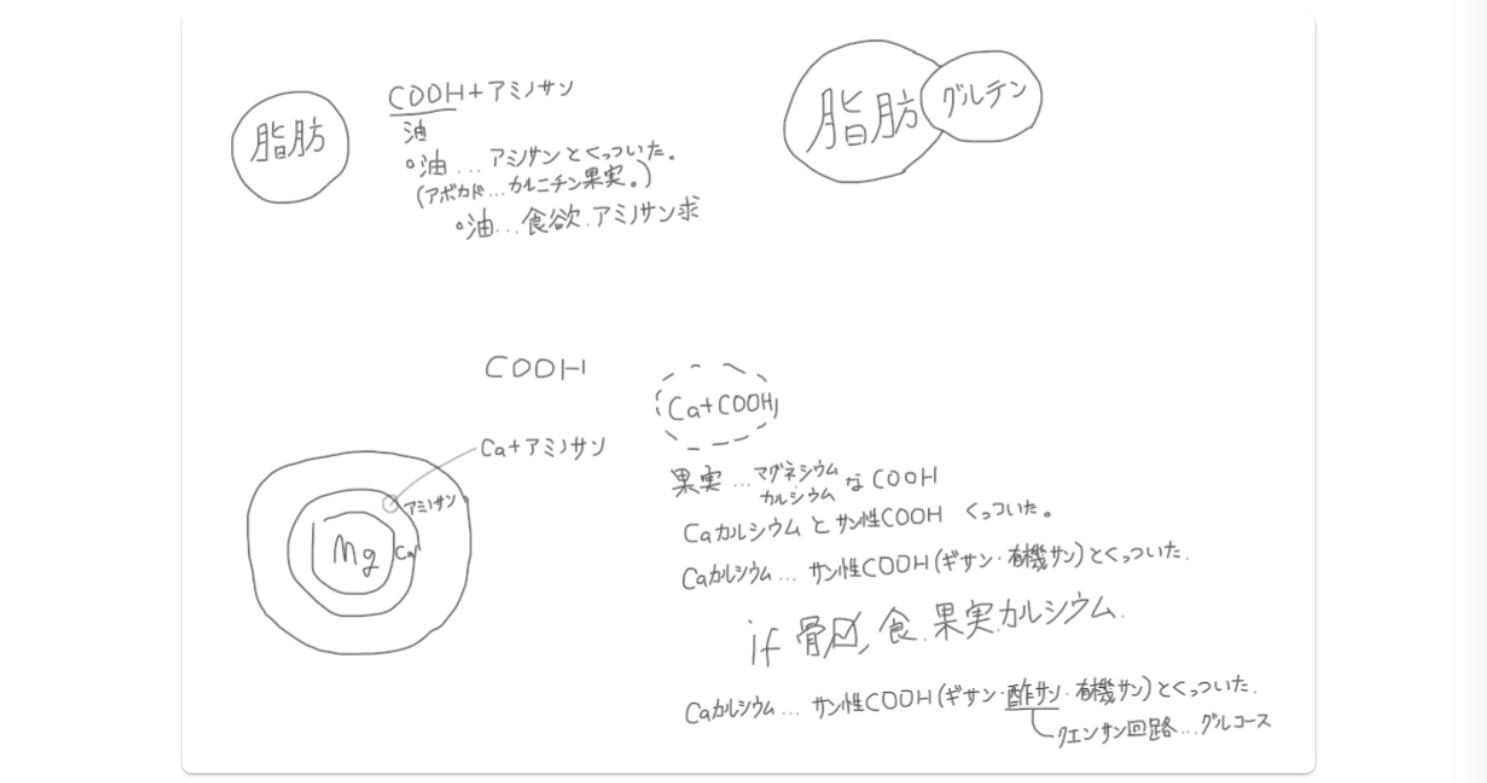 脂肪
COOH+アミノサン
油
°油...アミノサンとくっついた。
(アボカド...カルニチン果実。)
°油...食欲.アミノサン求
脂肪
グルテン
COOH
Ca+アミノサン
アミノサン
Mg
Ca
Ca+COOH
果実...マグネシウム カルシウム なCOOH
Caカルシウムとサン性COOH くっついた。
Caカルシウム...サン性COOH(ギサン・有機サン)とくっついた.
if 骨 食.果実.カルシウム.
Caカルシウム...サン性COOH(ギサン・酢サン・有機サン)とくっついた.
クエンサン回路...グルコース